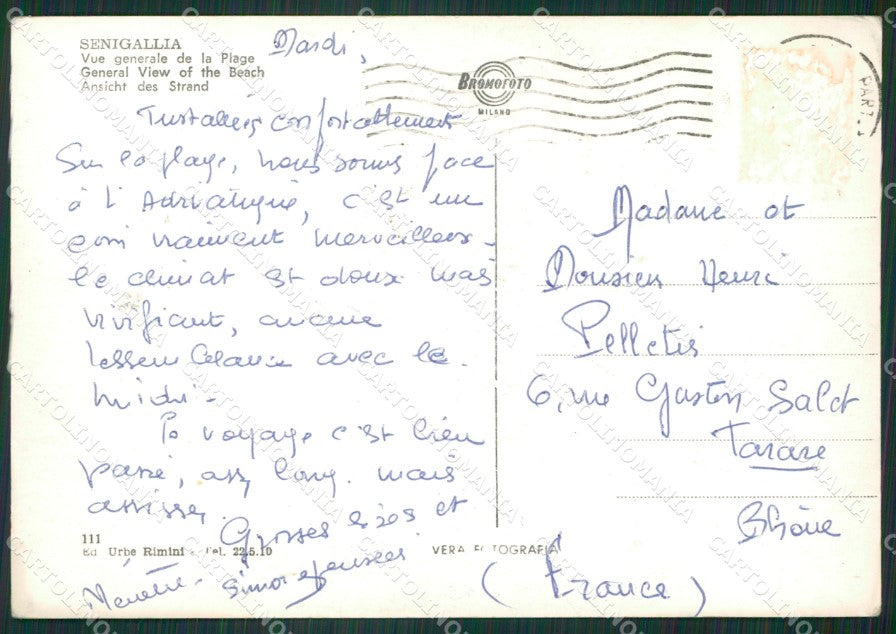 SENIGALLIA
Vue generale de la Plage
General View of the Beach
Ansicht des Strand
Mardi,
BROMOFOTO
MILANO
PART
Installées confortablement
Sur la plage, nous sommes face
à l'Adriatique, c'est un
coin vraiment merveilleux.
le climat est doux mais
vivifiant, aucune
ressemblance avec le
midi.
Le voyage c'est bien
passé, assez long. mais
assises.
Grosses bises et
pensées
Simone
111
Ed. Urbe Rimini - Tel. 22.5.10
VERA FOTOGRAFIA
Madame et
Monsieur Henri
Pelletis
6, rue Gaston Salet
Tarare
Rhône
(France)
CARTOLINOMANIA